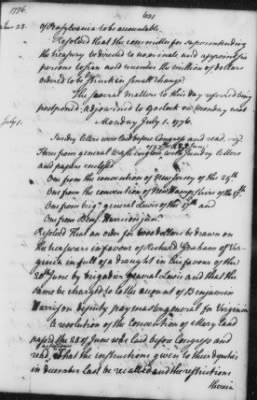 1776.
631
of Pensylvania to be accountable.
Resolved that the committee for superintending
the treasury be directed to nominate and appoint fit
persons to sign and number the million of dollars
ordered to be struck in small change.
The several matters to this day referred being
postponed. adjourned to 9 oClock on monday next
July 1.
Monday July 1. 1776.
Sundry letters were laid before Congress and read, viz
Three from general Washington with sundry letters
and papers enclosed
One from the convention of New Jersey of the 29th
One from the convention of New Hampshire of the
One from brigr general Lewis of the and
One from Benj Harrison junr.
Resolved That an order for dollars be drawn on
the treasurers in favour of Richard Graham of Vir-
ginia in full of a draught in his favour of the
20th June by brigadier general Lewis and that the
same be charged to the account of Benjamin
Harrison deputy paymaster general for Virginia
A resolution of the Convention of Maryland
passed the 28 of June was laid before Congress and
read, That the instructions given to their deputies
in december last be recalled and the restrictions
therein